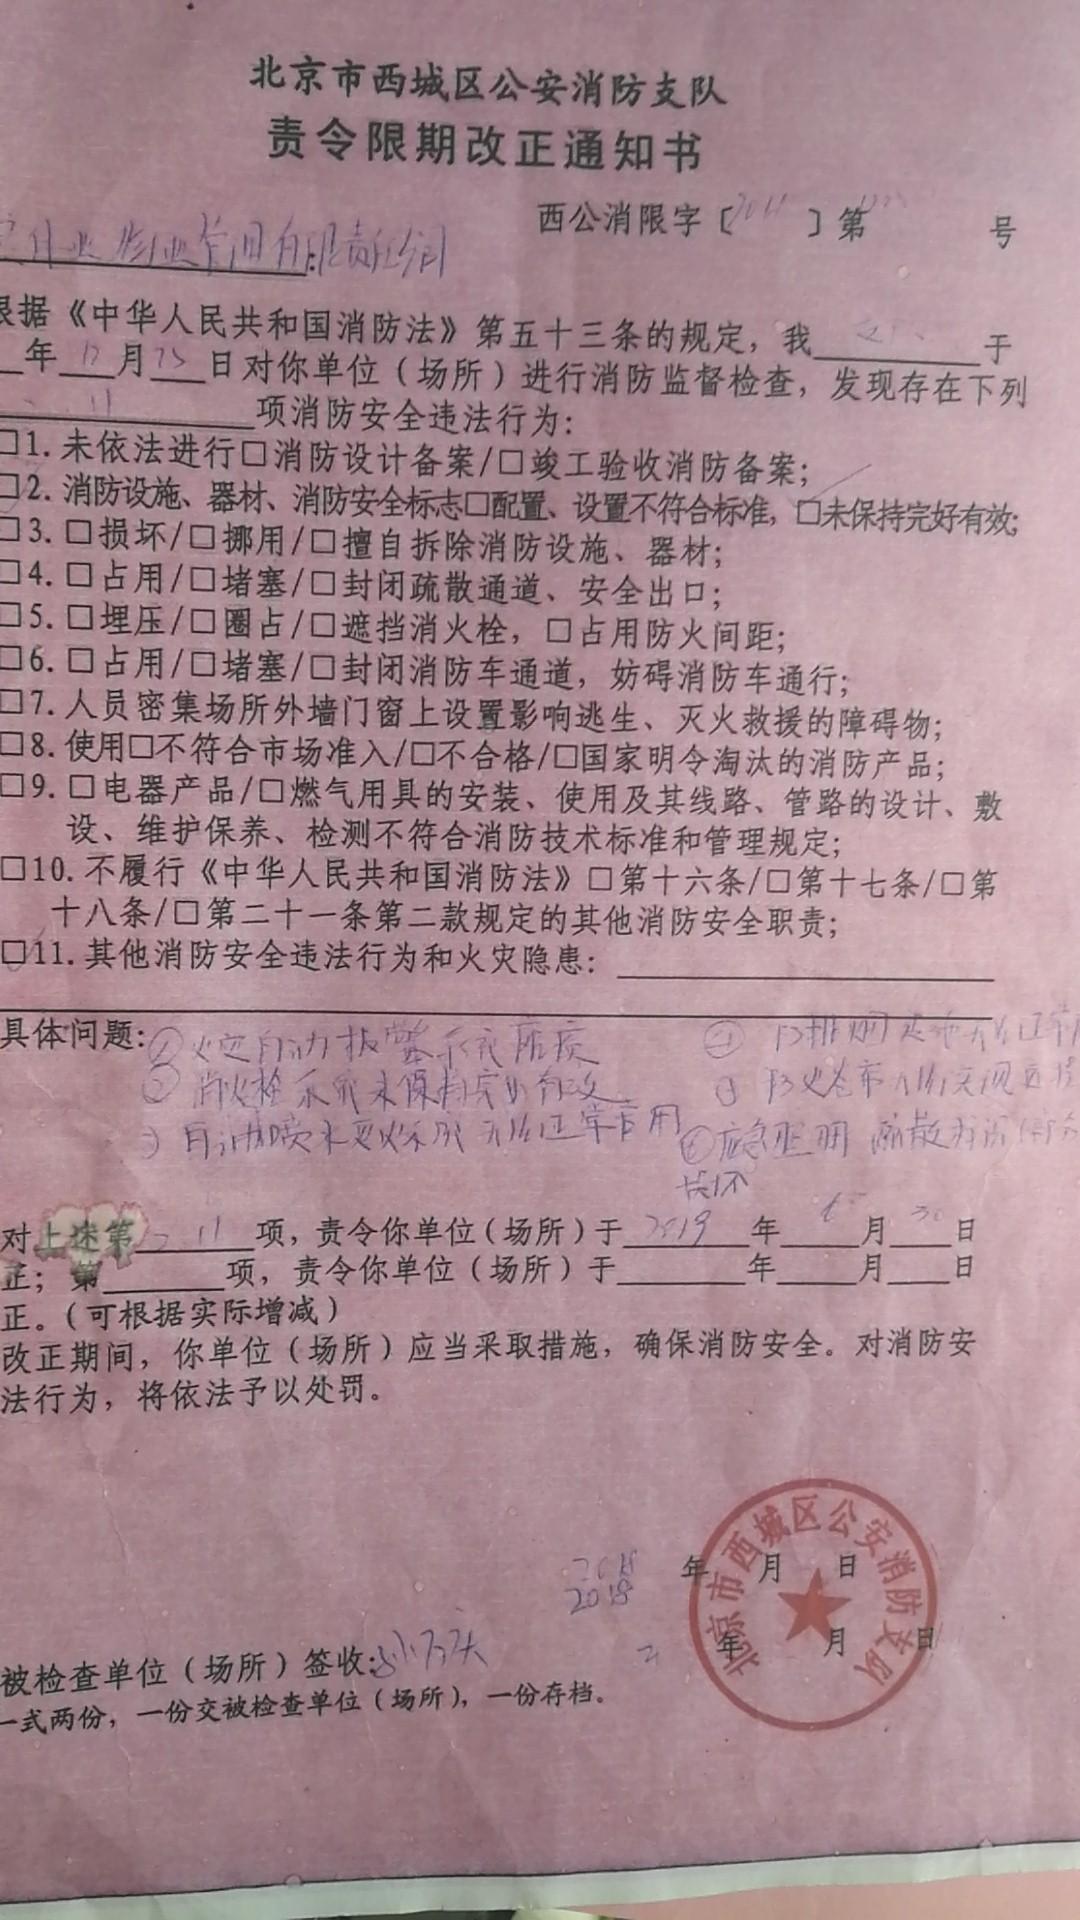 北京市西城区公安消防支队
责令限期改正通知书
西公消限字〔 〕第 号
物业管理有限责任公司
根据《中华人民共和国消防法》第五十三条的规定，我 于
年 12 月 25 日对你单位（场所）进行消防监督检查，发现存在下列
11 项消防安全违法行为：
□1. 未依法进行□消防设计备案/□竣工验收消防备案；
□2. 消防设施、器材、消防安全标志□配置、设置不符合标准，□未保持完好有效；
□3. □损坏/□挪用/□擅自拆除消防设施、器材；
□4. □占用/□堵塞/□封闭疏散通道、安全出口；
□5. □埋压/□圈占/□遮挡消火栓，□占用防火间距；
□6. □占用/□堵塞/□封闭消防车通道，妨碍消防车通行；
□7. 人员密集场所外墙门窗上设置影响逃生、灭火救援的障碍物；
□8. 使用□不符合市场准入/□不合格/□国家明令淘汰的消防产品；
□9. □电器产品/□燃气用具的安装、使用及其线路、管路的设计、敷
设、维护保养、检测不符合消防技术标准和管理规定；
□10. 不履行《中华人民共和国消防法》□第十六条/□第十七条/□第
十八条/□第二十一条第二款规定的其他消防安全职责；
□11. 其他消防安全违法行为和火灾隐患：
具体问题：① 火灾自动报警系统 ④ 防排烟 无法正常
② 消火栓系统未保持完好有效 ⑤ 防火卷帘无法
③ 自动喷水灭火系统无法正常启用 ⑥应急照明 疏散
损坏
对上述第 2 11 项，责令你单位（场所）于 2019 年 6 月 30 日
正；第 项，责令你单位（场所）于 年 月 日
正。（可根据实际增减）
改正期间，你单位（场所）应当采取措施，确保消防安全。对消防安
法行为，将依法予以处罚。
北京市西城区公安消防支队
2018 年 月 日
2018 年 月 日
被检查单位（场所）签收：
一式两份，一份交被检查单位（场所），一份存档。